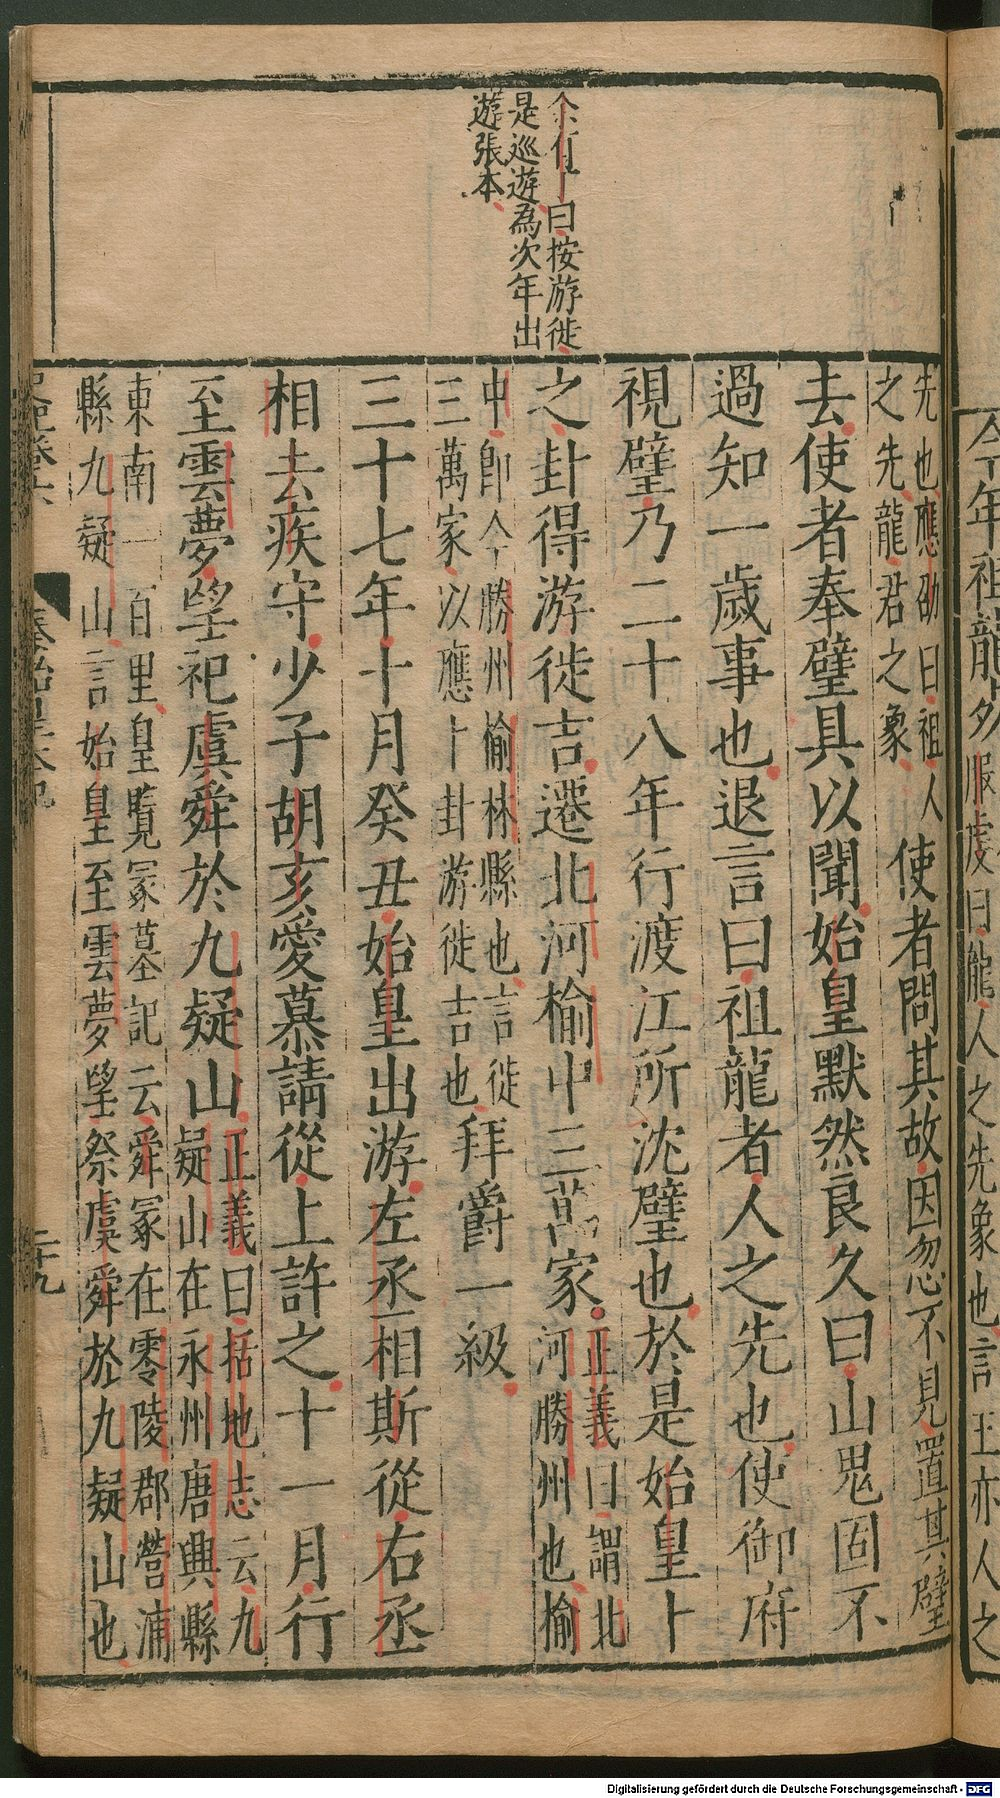 今年祖龍死服虔曰龍人之先象也言王亦人之
余有丁曰按游徙
是巡遊為次年出
遊張本
先也應劭曰祖人
之先龍君之象
使者問其故因忽不見置其璧
去使者奉璧具以聞始皇默然良久曰山鬼固不
過知一歲事也退言曰祖龍者人之先也使御府
視璧乃二十八年行渡江所沈璧也於是始皇卜
之卦得游徙吉遷北河榆中三萬家
正義曰謂北
河勝州也榆
中即今勝州榆林縣也言徙
三萬家以應卜卦游徙吉也
拜爵一級
三十七年十月癸丑始皇出游左丞相斯從右丞
相去疾守少子胡亥愛慕請從上許之十一月行
至雲夢望祀虞舜於九疑山
正義曰括地志云九
疑山在永州唐興縣
東南一百里皇覽冢墓記云舜冢在零陵郡營浦
縣九疑山言始皇至雲夢望祭虞舜於九疑山也
史記卷六
秦始皇本紀
二十九
Digitalisierung gefördert durch die Deutsche Forschungsgemeinschaft - DFG